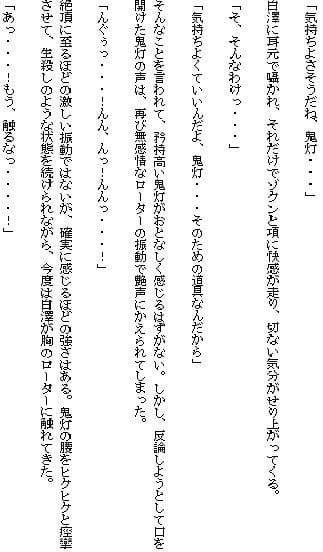 「気持ちよさそうだね、鬼灯・・・」
白澤に耳元で囁かれ、それだけでゾクンと項に快感が走り、切ない気分がせり上がってくる。
「そ、そんなわけっ・・・」
「気持ちよくていいんだよ、鬼灯・・・そのための道具なんだから」
そんなことを言われて、矜持高い鬼灯がおとなしく感じるはずがない。しかし、反論しようとして口を
開けた鬼灯の声は、再び無感情なローターの振動で艶声にかえられてしまった。
「んぐぅっ・・・！んん、んっ！んんっ・・・・！」
絶頂に至るほどの激しい振動ではないが、確実に感じるほどの強さはある。鬼灯の腰をヒクヒクと痙攣
させて、生殺しのような状態を続けられながら、今度は白澤が胸のローターに触れてきた。
「あっ・・・！もう、触るなっ・・・・！」